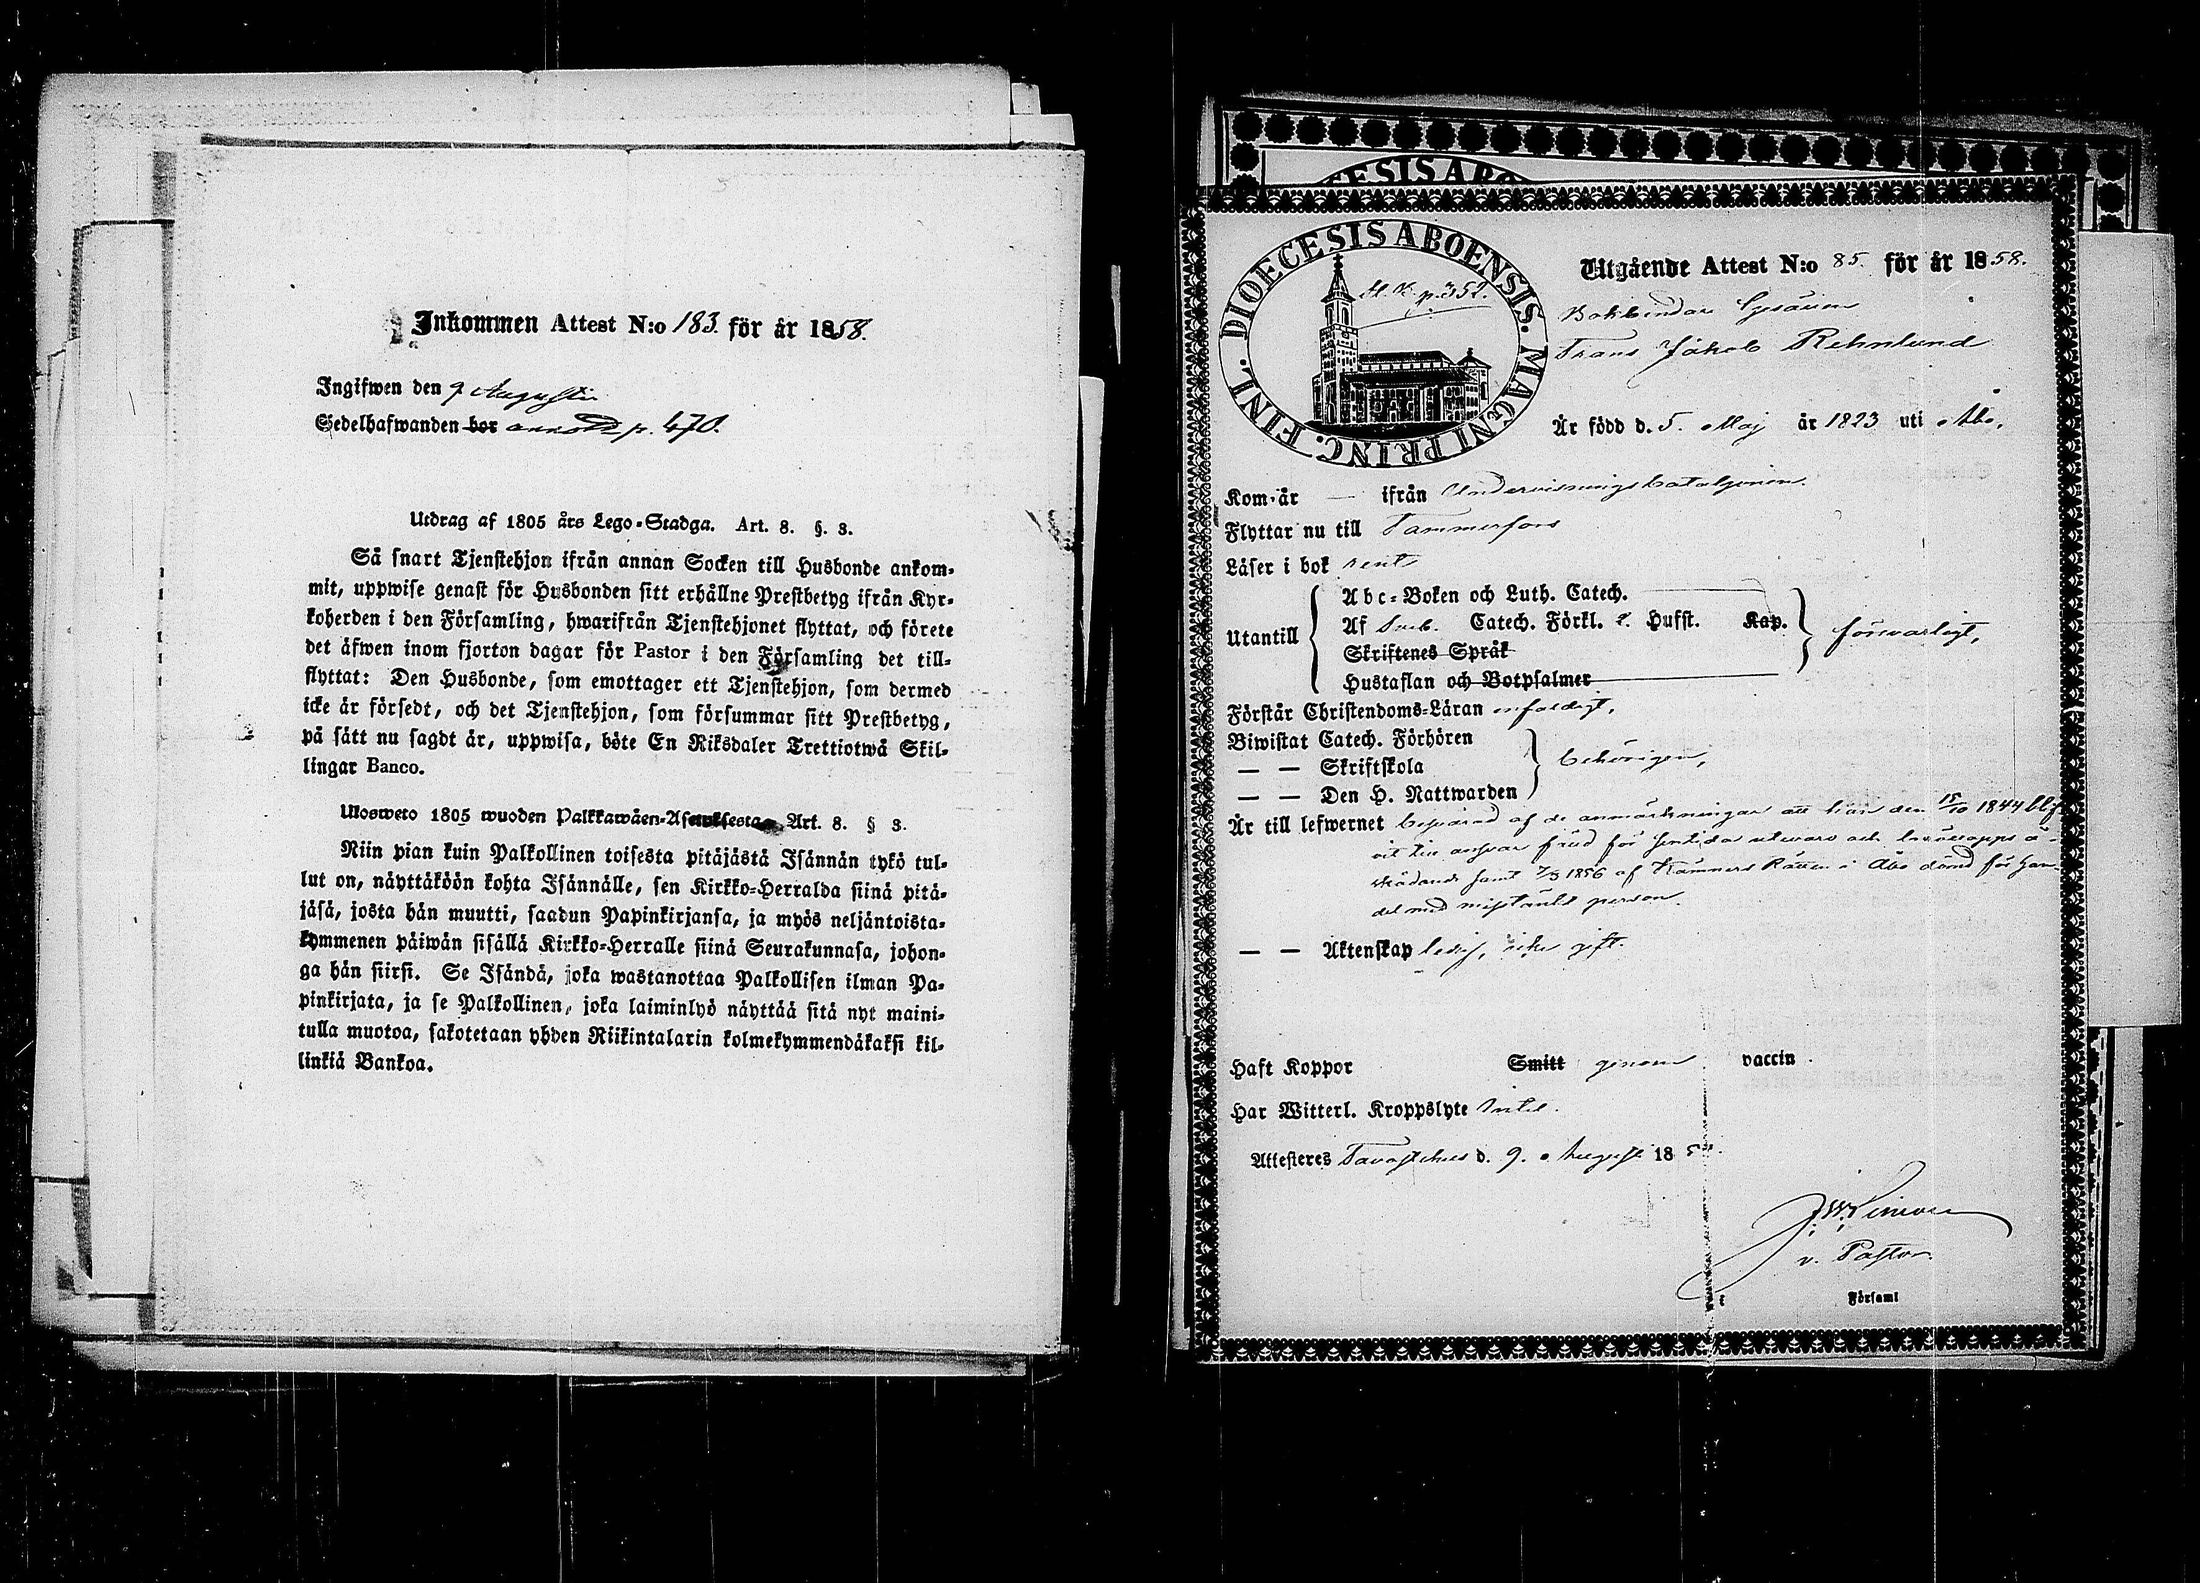 Inkommen Attest N:o 183. för år 1858.
Ingifwen den 9 Augusti
Sedelhafwanden bor p. 470.
Utdrag af 1805 års Lego-Stadga. Art. 8. §. 3.
Så snart Tjenstehjon ifrån annan Socken till Husbonde ankom-
mit, uppwise genast för Husbonden sitt erhållne Prestbetyg ifrån Kyr-
koherden i den Församling, hwarifrån Tjenstehjonet flyttat, och förete
det äfwen inom fjorton dagar för Pastor i den Församling det till-
flyttat: Den Husbonde, som emottager ett Tjenstehjon, som dermed
icke är försedt, och det Tjenstehjon, som försummar sitt Prestbetyg,
på sätt nu sagdt är, uppwisa, böte En Riksdaler Trettiotwå Skil-
lingar Banco.
Ulosweto 1805 wuoden Palkkawäen-Asetuksesta. Art. 8. § 3.
Niin pian kuin Palkollinen toisesta pitäjästä Isännän tykö tul-
lut on, näyttäköön kohta Isännälle, sen Kirkko-Herralda siinä pitä-
jäsä, josta hän muutti, saadun Papinkirjansa, ja myös neljäntoista-
kymmenen päiwän sisällä Kirkko-Herralle siinä Seurakunnasa, johon-
ga hän siirsi. Se Isändä, joka wastanottaa Palkollisen ilman Pa-
pinkirjata, ja se Palkollinen, joka laiminlyö näyttää sitä nyt maini-
tulla muotoa, sakotetaan yhden Riikintalarin kolmekymmendäkaksi kil-
linkiä Bankoa.
ESIS ABO
DIOECESIS ABOENSIS. MAGNI PRINC. FINL.
p. 352.
Utgående Attest N:o 85. för år 1858.
Bokbindare Gesällen
Frans Jakob Rehnlund
Är född d. 5. Maj år 1823 uti Åbo.
Kom år — ifrån Undervisningskatalogen.
Flyttar nu till Tammerfors
Läser i bok rent
Utantill
Abc-Boken och Luth. Catech.
Af Sveb. Catech. Förkl. 2. Hufst. Kap.
Skriftenes Språk
Hustaflan och Botpsalmer
försvarligt,
Förstår Christendoms-Läran enfaldigt,
Biwistat Catech. Förhören
— — Skriftskola
— — Den H. Nattwarden
behörigen,
Är till lefwernet besvärad af de anmärkningar att han den 15/10 1844 blif-
vit för
samt 7/3 1856 af Kämners Rätten i Åbo dömd för han-
del med misstänkt person.
— — Äktenskap ledig, icke gift.
Haft Koppor Smitt genom vaccin.
Har Witterl. Kroppslyte intet.
Attesteres Tavastehus d. 9. Augusti 1858.
v. Pastor.
Församl